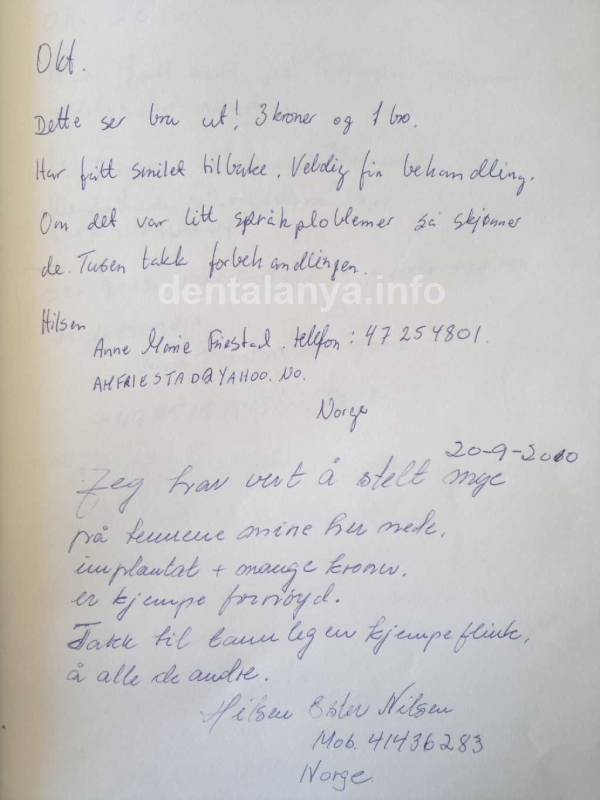 Okt.
Dette ser bra ut! 3 kroner og 1 bro.
Har fått smilet tilbake. Veldig fin behandling.
Om det var litt språkploblemer så skjønner
de. Tusen takk forbehandlingen.
dentalanya.info
Hilsen
Anne Marie Friestad. telefon: 47 25 48 01.
AMFRIESTAD@YAHOO.NO.
Norge
20-9-2010
Jeg har vert å stelt mye
på tennene mine her nede,
implantat + mange kroner.
er kjempe fornøyd.
Takk til tannlegen kjempeflink,
å alle de andre.
Hilsen Nilsen
Mob. 41436283
Norge